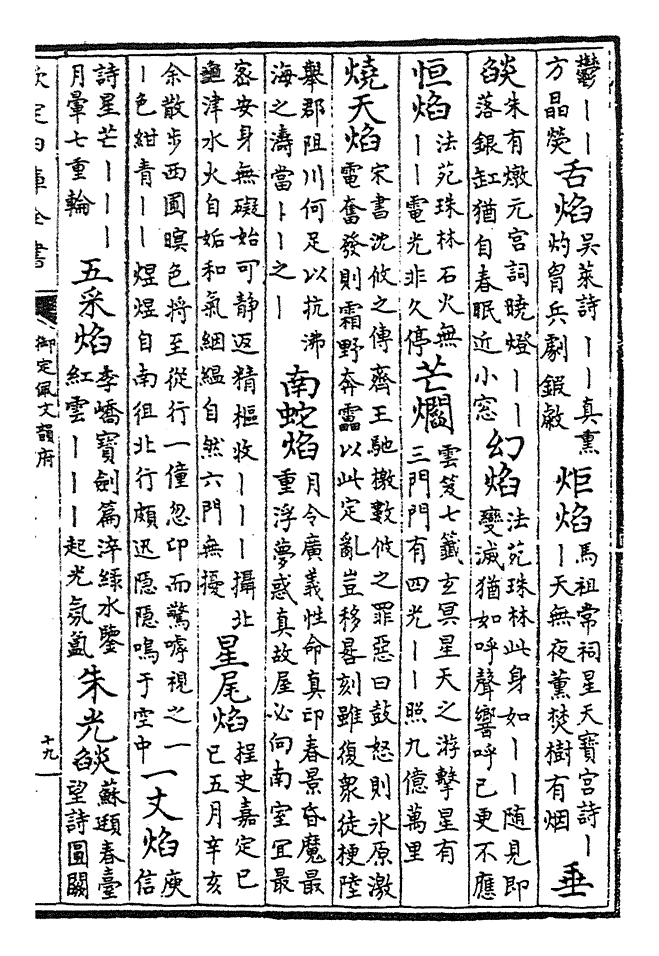 鬱丨丨
方晶熒
舌焰
吳萊詩丨丨真熏
灼胷兵劇鍜㪘
炬焰
馬祖常祠星天寶宮詩丨
丨天無夜薰焚樹有烟
垂
燄
朱有燉元宮詞曉燈丨丨
落銀缸猶自春眠近小窓
幻焰
法苑珠林此身如丨丨随見即
變滅猶如呼聲響呼已更不應
恒焰
法苑珠林石火無
丨丨電光非久停
芒爓
雲笈七籤玄冥星天之游擊星有
三門門有四光丨丨照九億萬里
燒天焰
宋書沈攸之傳齊王馳檄數攸之罪惡曰鼓怒則氷原激
電奮發則霜野奔靁以此定亂豈移晷刻雖復衆徒梗陸
舉郡阻川何足以抗沸
海之濤當丨丨之丨
南蛇焰
月令廣義性命真印春景昏魔最
重浮夢惑真故屋必向南室宜最
宻安身無礙始可静返精樞收丨丨丨攝北
龜津水火自姤和氣絪緼自然六門無擾
星尾焰
桯史嘉定已
巳五月辛亥
余散步西圃暝色将至從行一僮忽卬而驚嘑視之一
丨色紺青丨丨煜煜自南徂北行頗迅隐隐鳴于空中
一丈焰
庾
信
詩星芒丨丨丨
月暈七重輪
五采焰
李嶠寶劍篇淬緑水鑒
紅雲丨丨丨起光氛氲
朱光燄
蘇頲春臺
望詩圓闕
欽定四庫全書
御定佩文韻府
十九